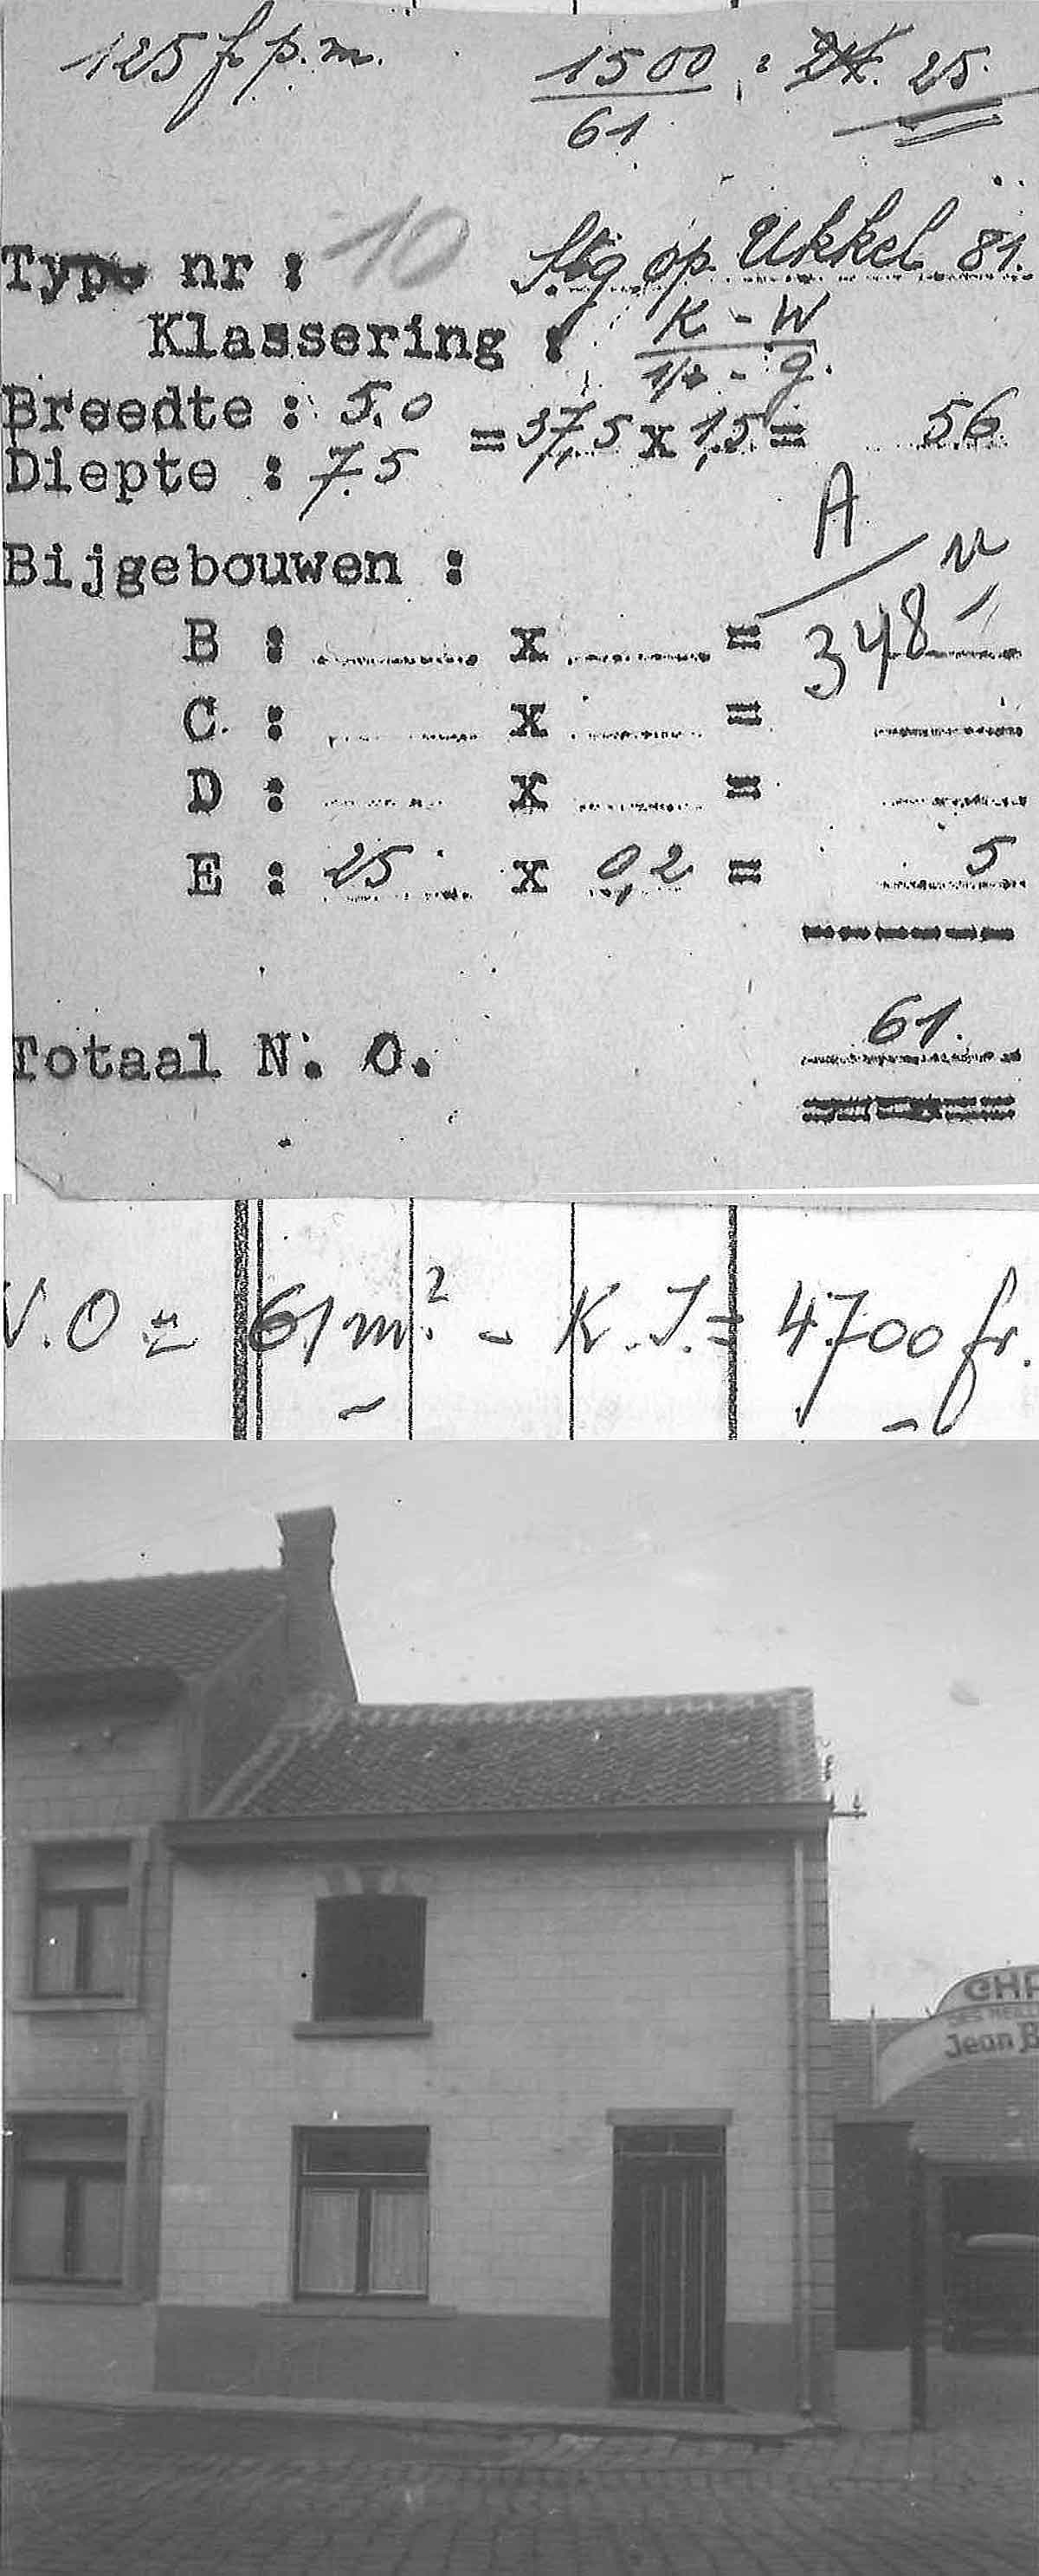 125 f p.m.
1500 : 24. 25.
61
Type nr : 10 Stg op Ukkel 81.
Klassering : K - W
1/2 - g.
Breedte : 5.0
= 37,5 x 1,5 = 56
Diepte : 7.5
A
Bijgebouwen :
B : x = 348
C : x =
D : x =
E : 25 x 0,2 = 5
Totaal N. O. 61.
N.O = 61 m². - K.I. = 4700 fr.
Jean